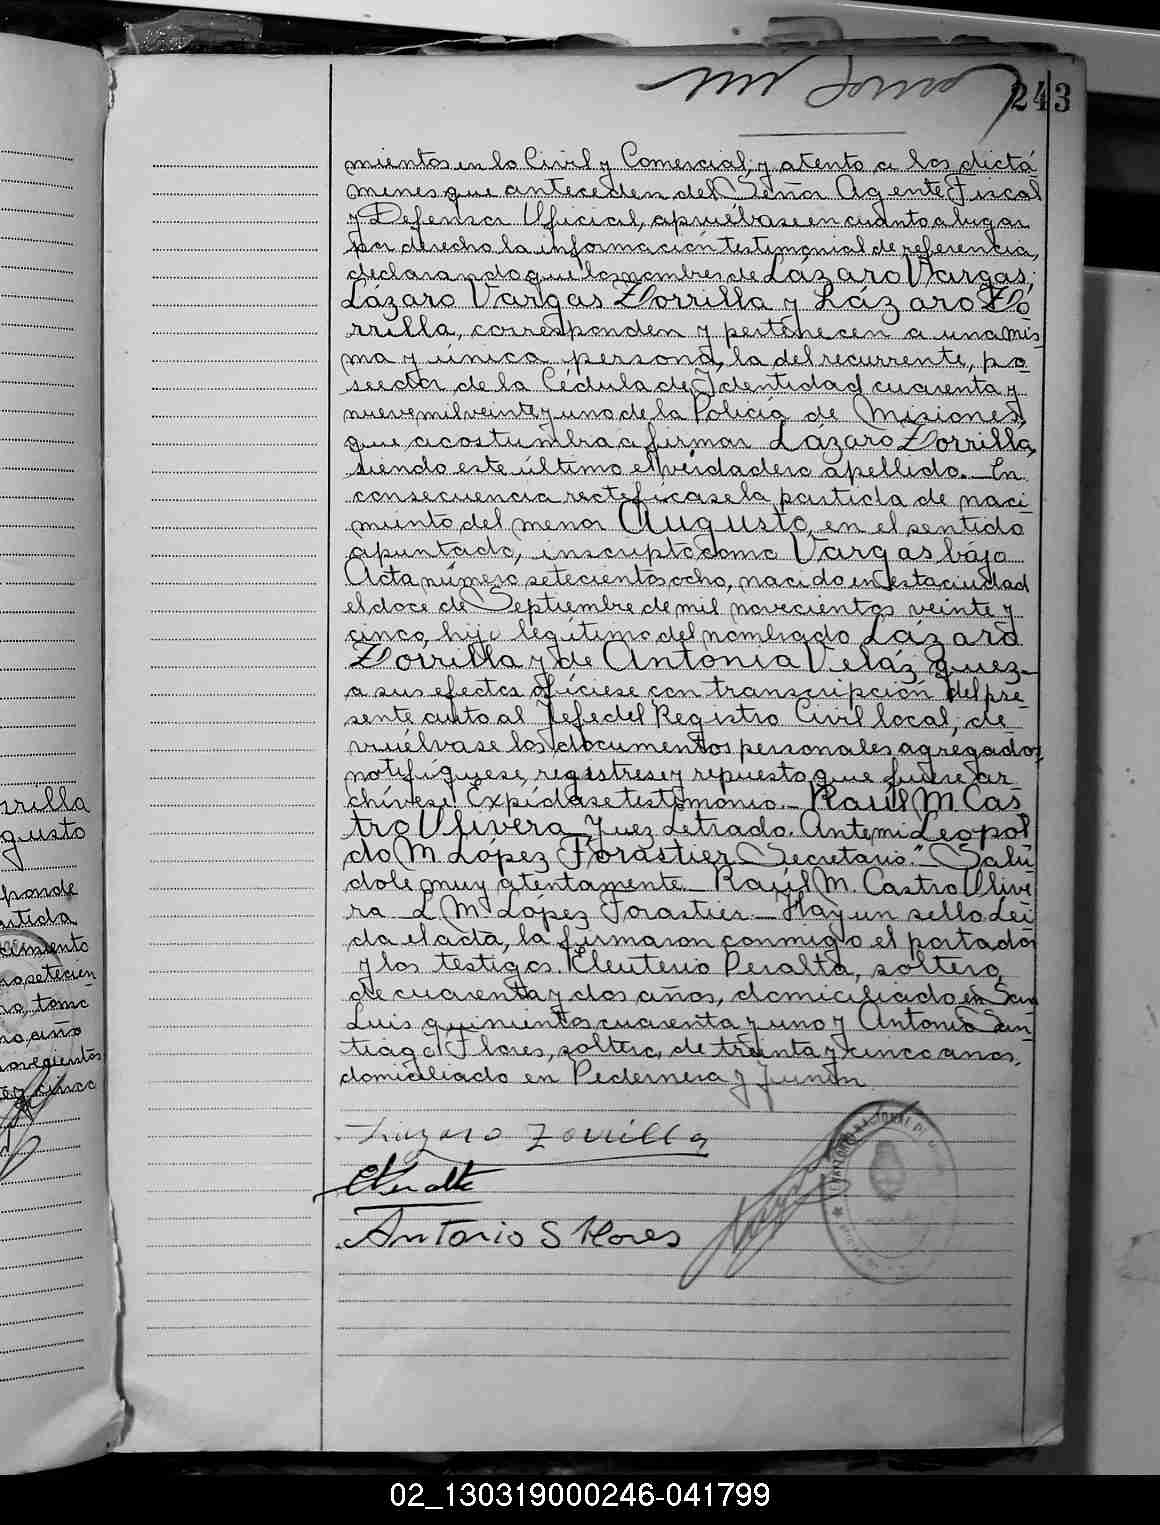 243
mientos en lo Civil y Comercial, y atento a los dictá
menes que anteceden del Señor Agente Fiscal
y Defensor Oficial, apruébase en cuanto a lugar
por derecho la información testimonial de referencia,
declarando que los nombres de Lázaro Vargas,
Lázaro Vargas Zorrilla y Lázaro Zo-
rrilla, corresponden y pertenecen a una mis-
ma y única persona, la del recurrente, po
seedor de la Cédula de Identidad cuarenta y
nueve mil veinte y uno de la Policía de Misiones,
que acostumbra a firmar Lázaro Zorrilla,
siendo este último el verdadero apellido.- En
consecuencia rectificase la partida de naci
miento del menor Augusto, en el sentido
apuntado, inscripto como Vargas, bajo
Acta número setecientos ocho, nacido en esta ciudad
el doce de Septiembre de mil novecientos veinte y
cinco, hijo legítimo del nombrado Lázaro
Zorrilla y de Antonia Velázquez-
a sus efectos ofíciese con transcripción del pre-
sente auto al Jefe del Registro Civil local, de
vuélvase los documentos personales agregados,
notifíquese, regístrese y repuesto que fuere ar
chívese. Expídase testimonio.- Raúl M. Cas-
tro Olivera, Juez Letrado. Ante mi Leopol
do M. López Forastier Secretario."- Salú
dole muy atentamente. Raúl M. Castro Olive
ra - L. M. López Forastier - Hay un sello. Leí
da el acta, la firmaron conmigo el portador
y los testigos. Eleuterio Peralta, soltero,
de cuarenta y dos años, domiciliado en San
Luis quinientos cuarenta y uno y Antonio San-
tiago Flores, soltero, de treinta y cinco anos,
domiciliado en Pedernera y Junín
Lazaro Zorrilla
Antonio S Flores
rrilla
gusto
ponde
artida
cimiento
setecien
tomo
año
cinco
02_130319000246-041799